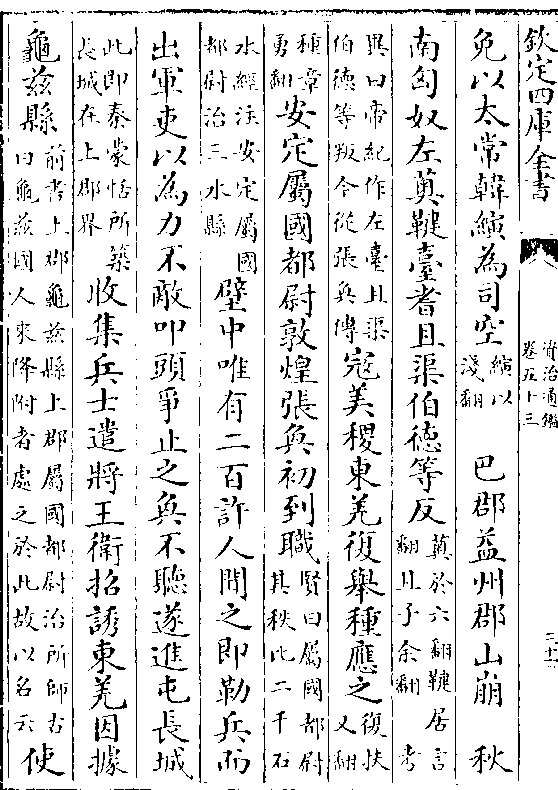 欽定四庫全書
資治通鑑
卷五十三
三十一
免以太常韓縯為司空縯以淺翻巴郡益州郡山崩秋
南匈奴左薁鞬臺耆且渠伯德等反薁於六翻鞬居言翻且子余翻考
異曰帝紀作左臺且渠伯德等叛今從張奐傳寇美稷東羌復舉種應之復扶又翻
種章勇翻安定屬國都尉敦煌張奐初到職賢曰屬國都尉其秩比二千石
水經注安定屬國都尉治三水縣壁中唯有二百許人聞之即勒兵而
出軍吏以為力不敵叩頭爭止之奐不聽遂進屯長城
此即秦蒙恬所築長城在上郡界收集兵士遣將王衛招誘東羌因據
龜兹縣前書上郡龜兹縣上郡屬國都尉治所師古曰龜兹國人來降附者處之於此故以名云使